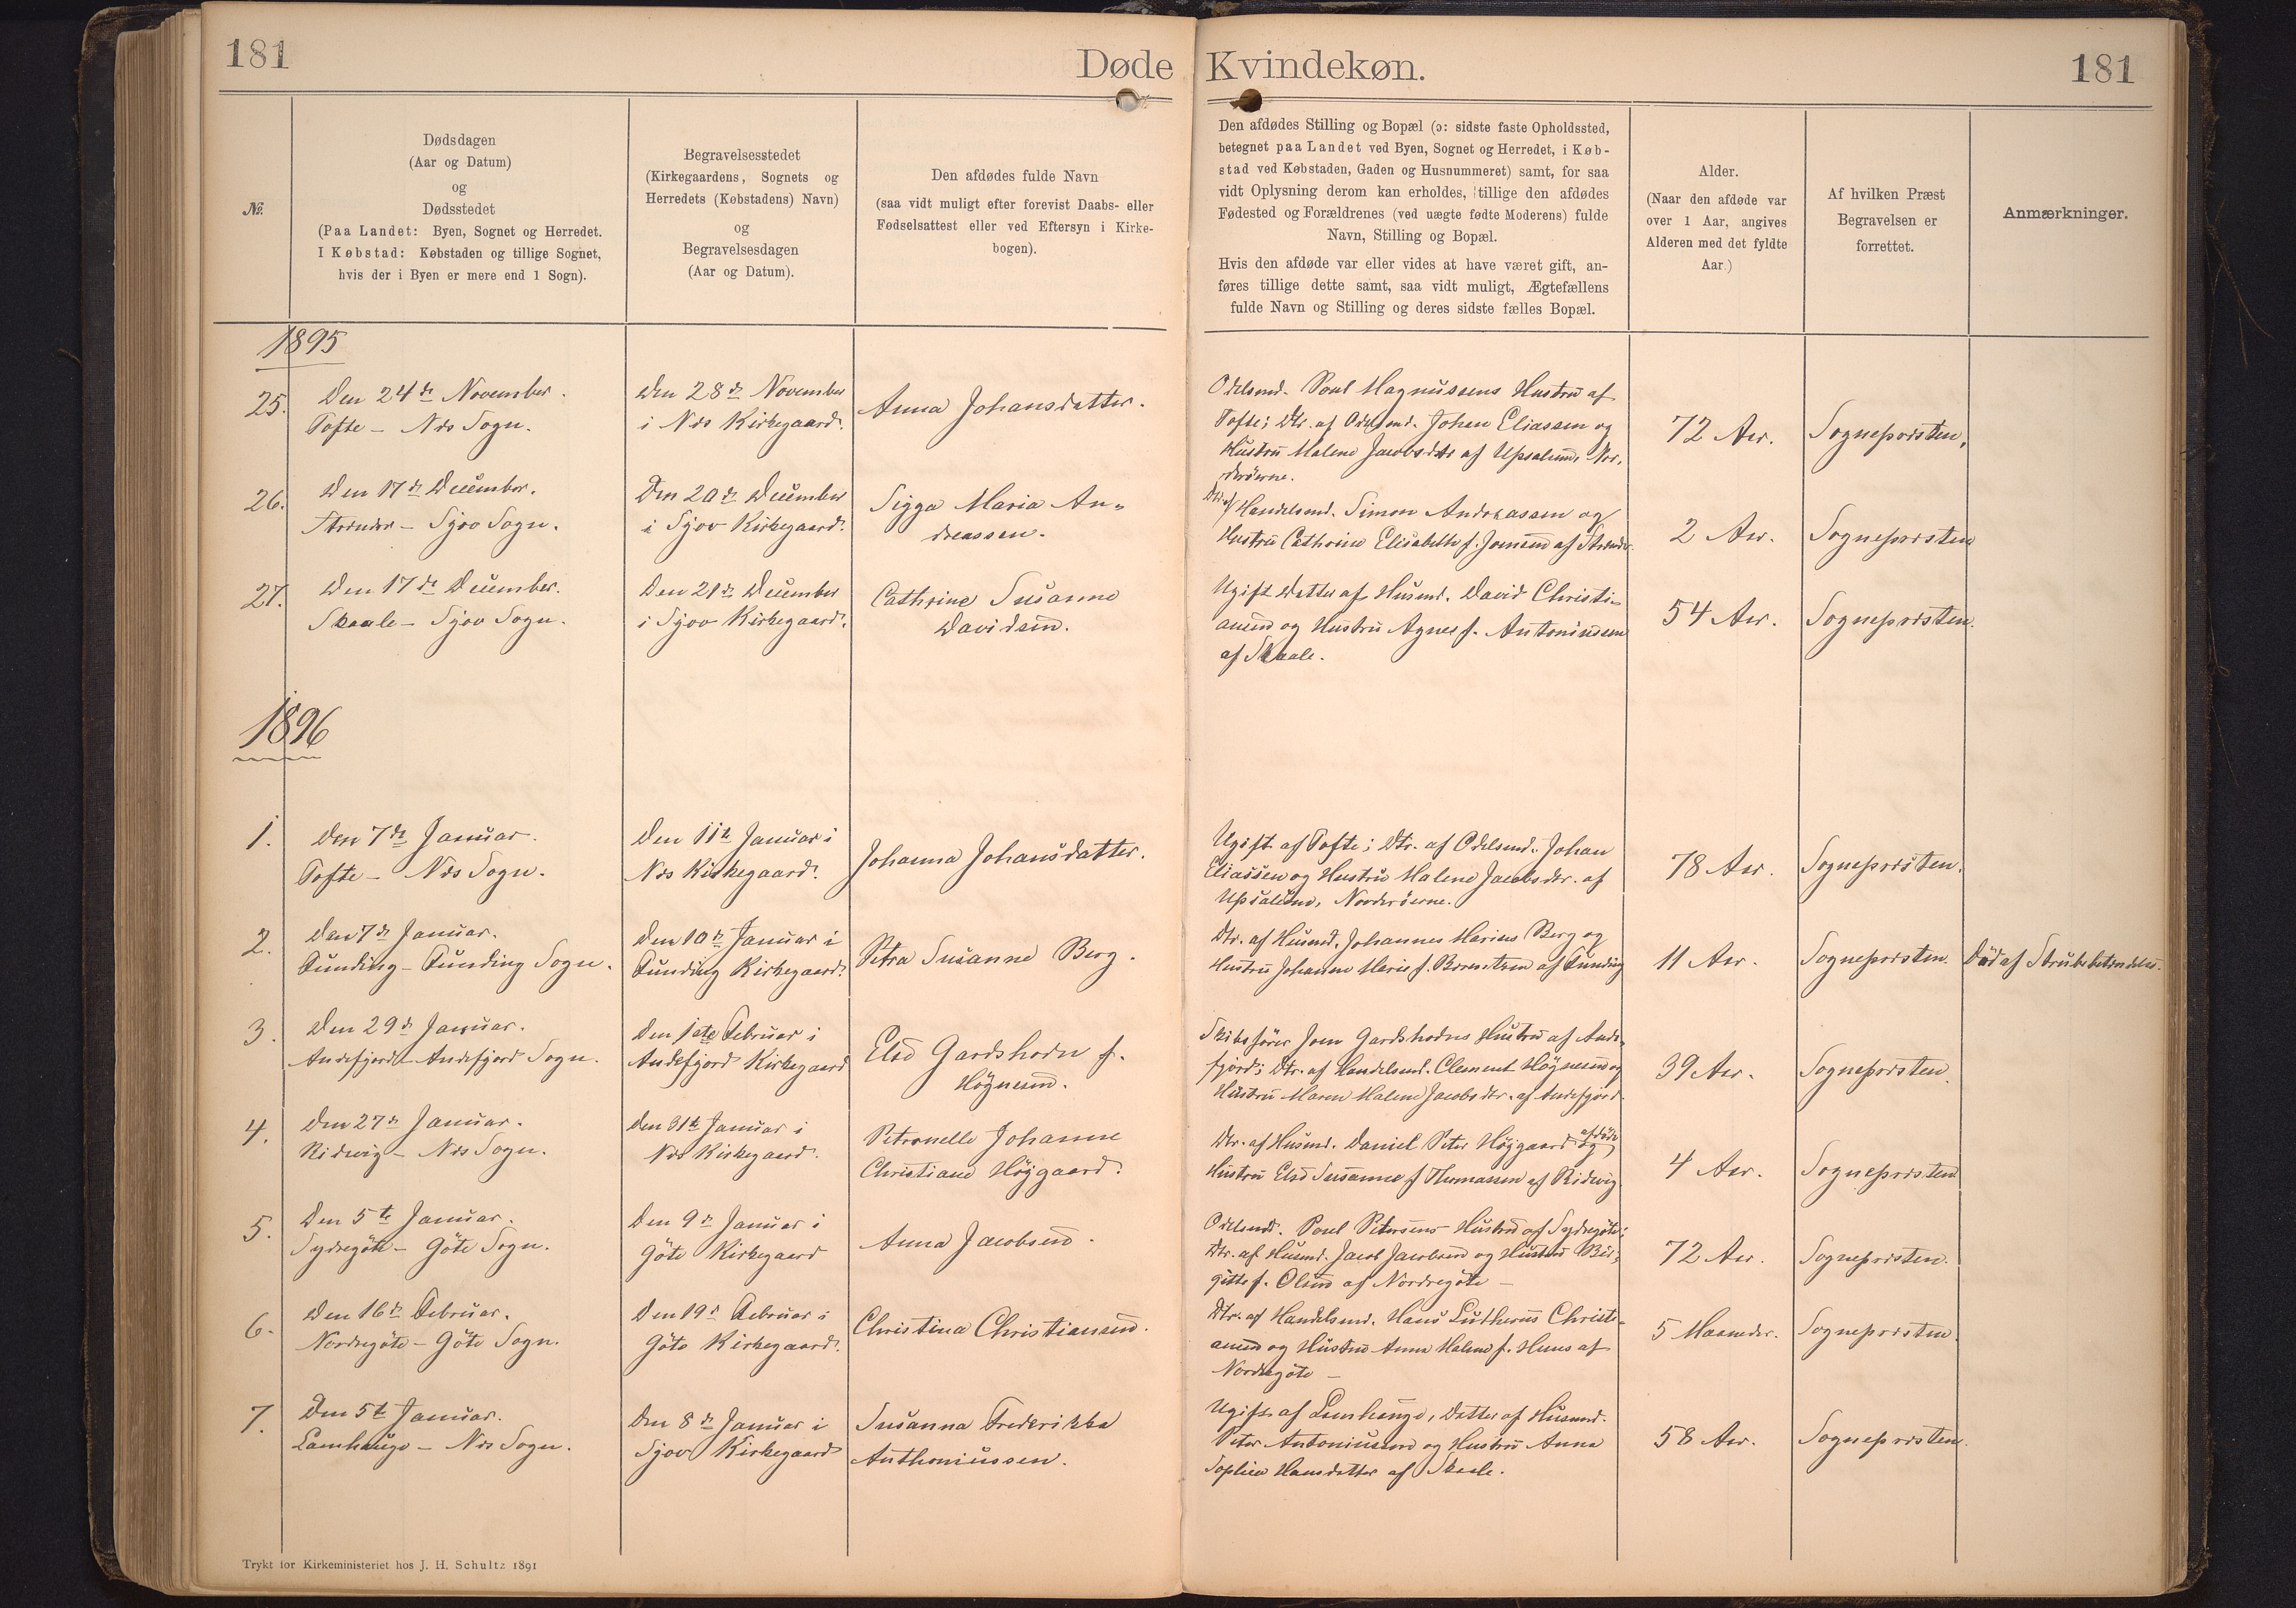 181
Døde Kvindekøn.
181
№.
Dødsdagen
(Aar og Datum)
og
Dødsstedet
(Paa Landet: Byen, Sognet og Herredet.
I Købstad: Købstaden og tillige Sognet,
hvis der i Byen er mere end 1 Sogn).
Begravelsesstedet
(Kirkegaardens, Sognets og
Herredets (Købstadens) Navn)
og
Begravelsesdagen
(Aar og Datum).
Den afdødes fulde Navn
(saa vidt muligt efter forevist Daabs- eller
Fødselsattest eller ved Eftersyn i Kirke-
bogen).
Den afdødes Stilling og Bopæl (ɔ: sidste faste Opholdssted,
betegnet paa Landet ved Byen, Sognet og Herredet, i Køb-
stad ved Købstaden, Gaden og Husnummeret) samt, for saa
vidt Oplysning derom kan erholdes, tillige den afdødes
Fødested og Forældrenes (ved uægte fødte Moderens) fulde
Navn, Stilling og Bopæl.
Hvis den afdøde var eller vides at have været gift, an-
føres tillige dette samt, saa vidt muligt, Ægtefællens
fulde Navn og Stilling og deres sidste fælles Bopæl.
Alder.
(Naar den afdøde var
over 1 Aar, angives
Alderen med det fyldte
Aar.)
Af hvilken Præst
Begravelsen er
forrettet.
Anmærkninger.
1895
25.
Den 24de November.
Tofte - Næs Sogn.
Den 28de November
i Næs Kirkegaard.
Anna Johansdatter.
Odelsmd. Poul Magnussens Hustru af
Tofte; Dtr. af Odelsmd. Johan Eliassen og
Hustru Malene Jacobsdtr af Upsalund, Nor-
derøerne.
72 Aar.
Sognepræsten.
26.
Den 17de December.
Strænder - Sjov Sogn.
Den 20de December
i Sjov Kirkegaard.
Sigga Maria An-
dreassen.
Dtr. af Handelsmd. Simon Andreassen og
Hustru Cathrine Elisabeth f. Joensen af Strænder
2 Aar.
Sognepræsten
27.
Den 17de December.
Skaale - Sjov Sogn.
Den 21de December
i Sjov Kirkegaard.
Cathrine Susanne
Davidsen.
Ugift Datter af Husmd. David Christi-
ansen og Hustru Agnes f. Antoniusen
af Skaale.
54 Aar.
Sognepræsten.
1896
1.
Den 7de Januar.
Tofte - Næs Sogn.
Den 11te Januar i
Næs Kirkegaard.
Johanna Johansdatter.
Ugift af Tofte; Dtr. af Odelsmd. Johan
Eliassen og Hustru Malene Jacobsdtr. af
Upsalund, Norderöerne.
78 Aar.
Sognepræsten.
2.
Den 7de Januar.
Funding - Funding Sogn.
Den 10de Januar i
Funding Kirkegaard.
Petra Susanne Berg.
Dtr. af Husmd. Johannes Marius Berg og
Hustru Johanne Marie f. Berentsen af Funding
11 Aar.
Sognepræsten.
Död af Strubebetændelse.
3.
Den 29de Januar.
Andefjord - Andefjord Sogn.
Den 1ste Februar i
Andefjord Kirkegaard
Else Gardshodn f.
Högnesen.
Skibsförer Joen Gardshodns Hustru af Ande-
fjord; Dtr. af Handelsmd. Clement Högnesen og
Hustru Maren Malene Jacobsdtr. af Andefjord.
39 Aar.
Sognepræsten.
4.
Den 27de Januar.
Ridevig - Næs Sogn.
Den 31te Januar i
Næs Kirkegaard.
Petronelle Johanne
Christiane Höjgaard.
Dtr. af Husmd. Daniel Peter Höjgaard og afdöde
Hustru Else Susanne f Thomassen af Ridevig
4 Aar.
Sognepræsten
5.
Den 5te Januar.
Sydregöte - Göte Sogn.
Den 9de Januar i
Göte Kirkegaard
Anna Jacobsen.
Odelsmd. Poul Petersens Hustru af Sydregöte;
Dtr. af Husmd. Jacob Jacobsen og Hustru Bir-
gitte f. Olsen af Nordregöte -
72 Aar.
Sognepræsten.
6.
Den 16de Februar.
Nordregöte - Göte Sogn.
Den 19de Februar i
Göte Kirkegaard.
Christina Christiansen.
Dtr. af Handelsmd. Hans Lutherus Christi-
ansen og Hustru Anna Malene f. Huus af
Nordregöte -
5 Maaneder.
Sognepræsten.
7.
Den 5te Januar.
Lamhauge - Næs Sogn.
Den 8de Januar i
Sjov Kirkegaard
Susanna Frederikka
Anthoniussen.
Ugift af Lamhauge, Datter af Husmd.
Peter Antoniussen og Hustru Anna
Sophie Hansdatter af Skaale.
58 Aar.
Sognepræsten.
Trykt for Kirkeministeriet hos J. H. Schultz 1891